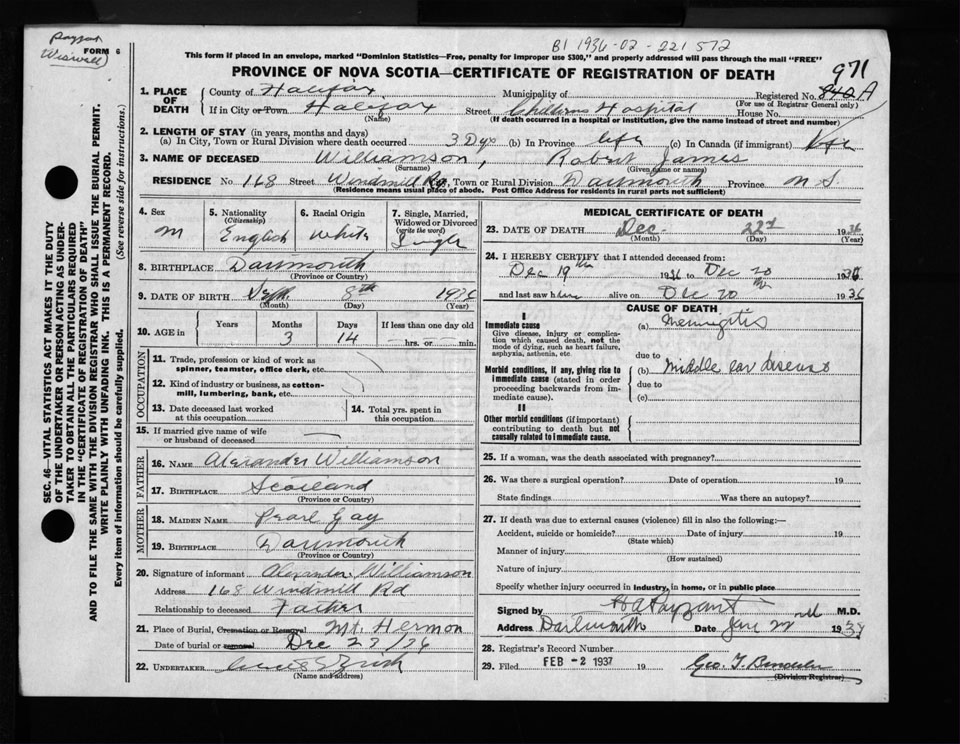 Payzant
Wiswell
FORM 6
B1 1936-02-221572
This form if placed in an envelope, marked "Dominion Statistics—Free, penalty for improper use $300," and properly addressed will pass through the mail "FREE"
PROVINCE OF NOVA SCOTIA—CERTIFICATE OF REGISTRATION OF DEATH
971
1. PLACE OF DEATH
County of Halifax Municipality of Registered No. 840 A
(For use of Registrar General only)
If in City or Town Halifax Street Childrens Hospital House No.
(Name) (If death occurred in a hospital or institution, give the name instead of street and number)
2. LENGTH OF STAY (in years, months and days)
(a) In City, Town or Rural Division where death occurred 3 Dys (b) In Province life (c) In Canada (if immigrant)
3. NAME OF DECEASED Williamson, Robert James
(Surname) (Given name or names)
RESIDENCE No. 168 Street Windmill Rd, Town or Rural Division Dartmouth Province N S
(Residence means usual place of abode. Post Office Address for residents in rural parts not sufficient)
4. Sex M
5. Nationality (Citizenship) English
6. Racial Origin White
7. Single, Married, Widowed or Divorced (write the word) Single
8. BIRTHPLACE Dartmouth
(Province or Country)
9. DATE OF BIRTH Sept. 8th 1936
(Month) (Day) (Year)
10. AGE in Years Months 3 Days 14 If less than one day old hrs. or min.
OCCUPATION
11. Trade, profession or kind of work as spinner, teamster, office clerk, etc.
12. Kind of industry or business, as cotton-mill, lumbering, bank, etc.
13. Date deceased last worked at this occupation
14. Total yrs. spent in this occupation
15. If married give name of wife or husband of deceased
FATHER
16. NAME Alexander Williamson
17. BIRTHPLACE Scotland
(Province or Country)
MOTHER
18. MAIDEN NAME Pearl Gay
19. BIRTHPLACE Dartmouth
(Province or Country)
20. Signature of informant Alexander Williamson
Address 168 Windmill Rd
Relationship to deceased Father
21. Place of Burial, Cremation or Removal Mt. Hermon
Date of burial or removal Dec 23/36
22. UNDERTAKER
(Name and address)
MEDICAL CERTIFICATE OF DEATH
23. DATE OF DEATH Dec. 22nd 1936
(Month) (Day) (Year)
24. I HEREBY CERTIFY that I attended deceased from:
Dec 19th 1936 to Dec 20 1936
and last saw him alive on Dec 20th 1936
CAUSE OF DEATH
I
Immediate cause
Give disease, injury or complication which caused death, not the mode of dying, such as heart failure, asphyxia, asthenia, etc.
(a) Meningitis
due to
Morbid conditions, if any, giving rise to immediate cause (stated in order proceeding backwards from immediate cause).
(b) Middle ear disease
due to
(c)
II
Other morbid conditions (if important) contributing to death but not causally related to immediate cause.
25. If a woman, was the death associated with pregnancy?
26. Was there a surgical operation? Date of operation 19
State findings Was there an autopsy?
27. If death was due to external causes (violence) fill in also the following:—
Accident, suicide or homicide? Date of injury 19
(State which)
Manner of injury
(How sustained)
Nature of injury
Specify whether injury occurred in industry, in home, or in public place
Signed by H A Payzant M.D.
Address Dartmouth Date Jan 22 1937
28. Registrar's Record Number
29. Filed FEB -2 1937 19
(Division Registrar)
SEC. 46—VITAL STATISTICS ACT MAKES IT THE DUTY
OF THE UNDERTAKER OR PERSON ACTING AS UNDERTAKER
TO OBTAIN ALL THE PARTICULARS REQUIRED
IN THE "CERTIFICATE OF REGISTRATION OF DEATH"
AND TO FILE THE SAME WITH THE DIVISION REGISTRAR WHO SHALL ISSUE THE BURIAL PERMIT.
WRITE PLAINLY WITH UNFADING INK. THIS IS A PERMANENT RECORD.
Every item of information should be carefully supplied. (See reverse side for instructions.)